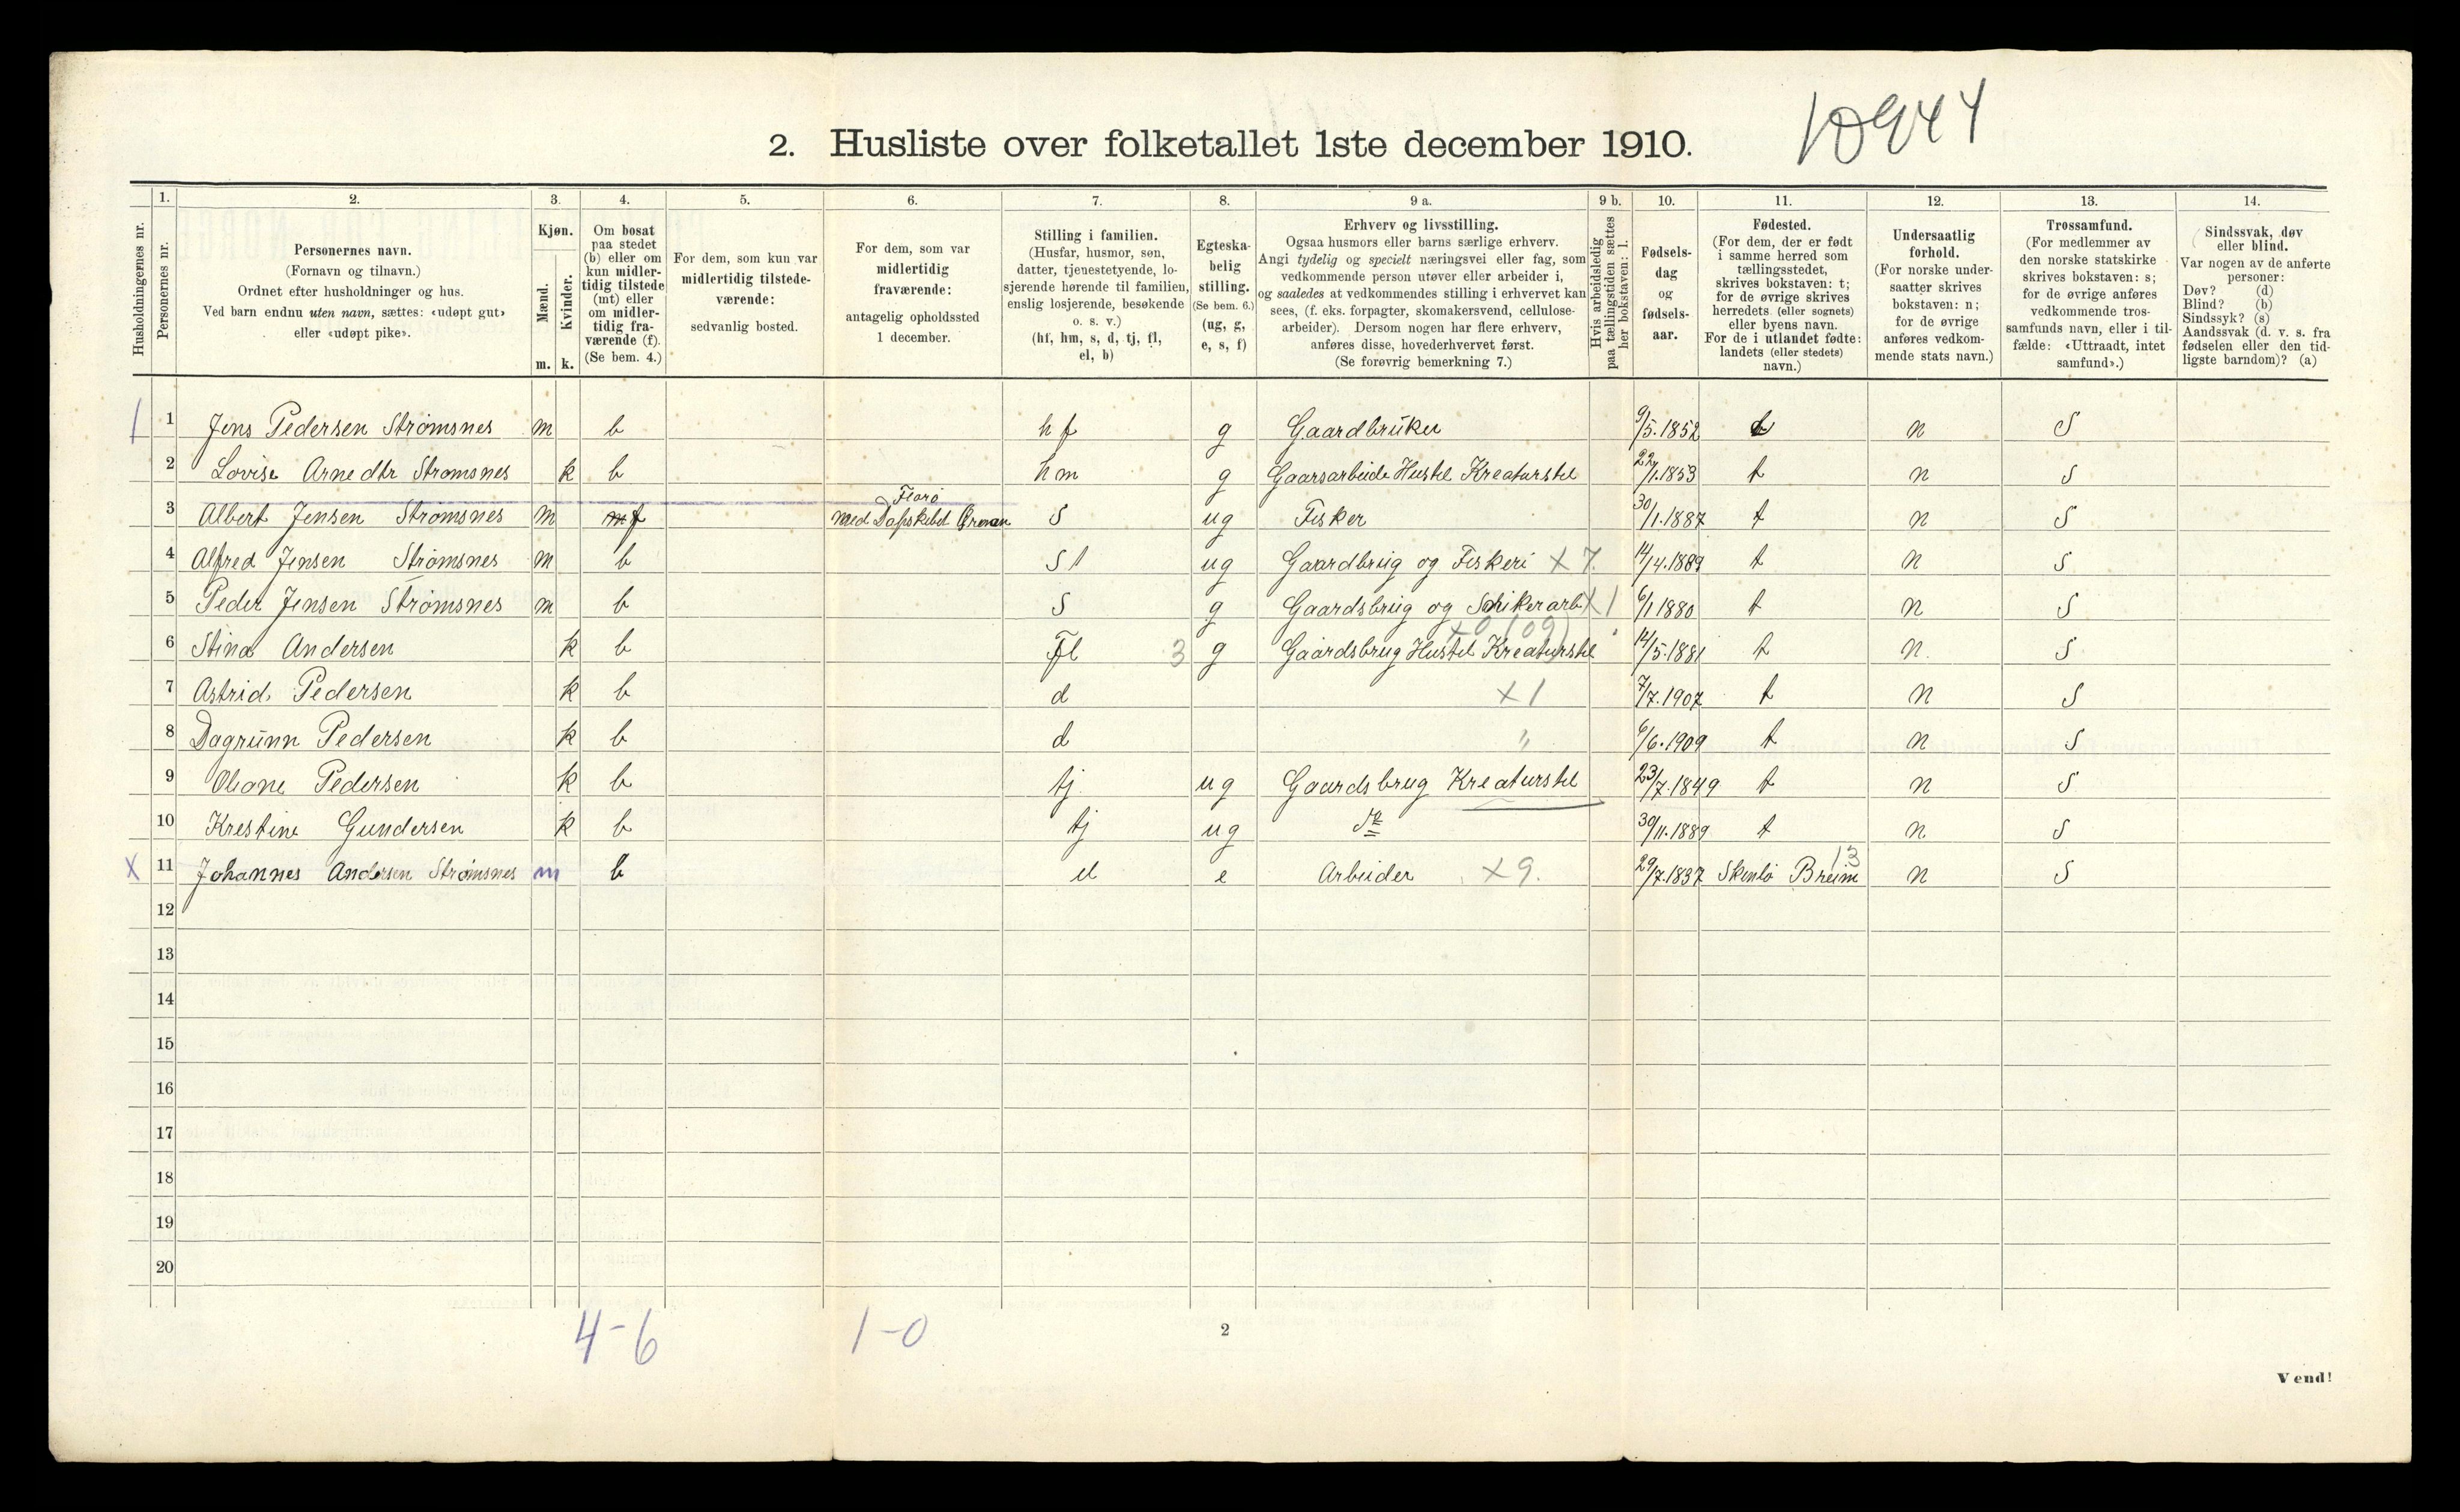 10944
2. Husliste over folketallet 1ste december 1910.
Husholdningernes nr.
1.
Personernes nr.
2.
Personernes navn.
(Fornavn og tilnavn.)
Ordnet efter husholdninger og hus.
Ved barn endnu uten navn, sættes: «udøpt gut»
eller «udøpt pike».
3.
Kjøn.
Mænd.
m.
Kvinder.
k.
4.
Om bosat
paa stedet
(b) eller om
kun midler-
tidig tilstede
(mt) eller
om midler-
tidig fra-
værende (f).
(Se bem. 4.)
5.
For dem, som kun var
midlertidig tilstede-
værende:
sedvanlig bosted.
6.
For dem, som var
midlertidig
fraværende:
antagelig opholdssted
1 december.
7.
Stilling i familien.
(Husfar, husmor, søn,
datter, tjenestetyende, lo-
sjerende hørende til familien,
enslig losjerende, besøkende
o. s. v.)
(hf, hm, s, d, tj, fl,
el, b)
8.
Egteska-
belig
stilling.
(Se bem. 6.)
(ug, g,
e, s, f)
9 a.
Erhverv og livsstilling.
Ogsaa husmors eller barns særlige erhverv.
Angi tydelig og specielt næringsvei eller fag, som
vedkommende person utøver eller arbeider i,
og saaledes at vedkommendes stilling i erhvervet kan
sees, (f. eks. forpagter, skomakersvend, cellulose-
arbeider). Dersom nogen har flere erhverv,
anføres disse, hovederhvervet først.
(Se forøvrig bemerkning 7.)
9 b.
Hvis arbeidsledig
paa tællingstiden sættes
her bokstaven: l.
10.
Fødsels-
dag
og
fødsels-
aar.
11.
Fødested.
(For dem, der er født
i samme herred som
tællingsstedet,
skrives bokstaven: t;
for de øvrige skrives
herredets (eller sognets)
eller byens navn.
For de i utlandet fødte:
landets (eller stedets)
navn.)
12.
Undersaatlig
forhold.
(For norske under-
saatter skrives
bokstaven: n;
for de øvrige
anføres vedkom-
mende stats navn.)
13.
Trossamfund.
(For medlemmer av
den norske statskirke
skrives bokstaven: s;
for de øvrige anføres
vedkommende tros-
samfunds navn, eller i til-
fælde: «Uttraadt, intet
samfund».)
14.
Sindssvak, døv
eller blind.
Var nogen av de anførte
personer:
Døv? (d)
Blind? (b)
Sindssyk? (s)
Aandssvak (d. v. s. fra
fødselen eller den tid-
ligste barndom)? (a)
1 1 Jens Pedersen Strømsnes m b hf g Gaardbruker 9/5.1852 t n S
2 Lovise Arnedtr Strømsnes k b hm g Gaarsarbeide Hustel Kreaturstel 22/1.1853 t n S
Florø
3 Albert Jensen Strømsnes m f med S ug Fisker 30/1.1887 t n S
4 Alfred Jensen Strømsnes m b S ug Gaardbrug og Fiskeri x7 14/4.1889 t n S
5 Peder Jensen Strømsnes m b S g Gaardsbrug og x1 6/1 1880 t n S
x0 (09)
6 Stina Andersen k b Fl 3 g Gaardsbrug Hustel Kreaturstel 14/5.1881 t n S
7 Astrid Pedersen k b d x1 7/7.1907 t n S
8 Dagrunn Pedersen k b d " 6/6.1909 t n S
9 Oliane Pedersen k b tj ug Gaardsbrug Kreaturstel 23/7.1849 t n S
10 Krestine Gundersen k b tj ug do 30/11.1889 t n S
13
x 11 Johannes Andersen Strømsnes m b el e Arbeider x9. 29/7.1837 Breim n S
12
13
14
15
16
17
18
19
20
4-6 1-0
2
Vend!